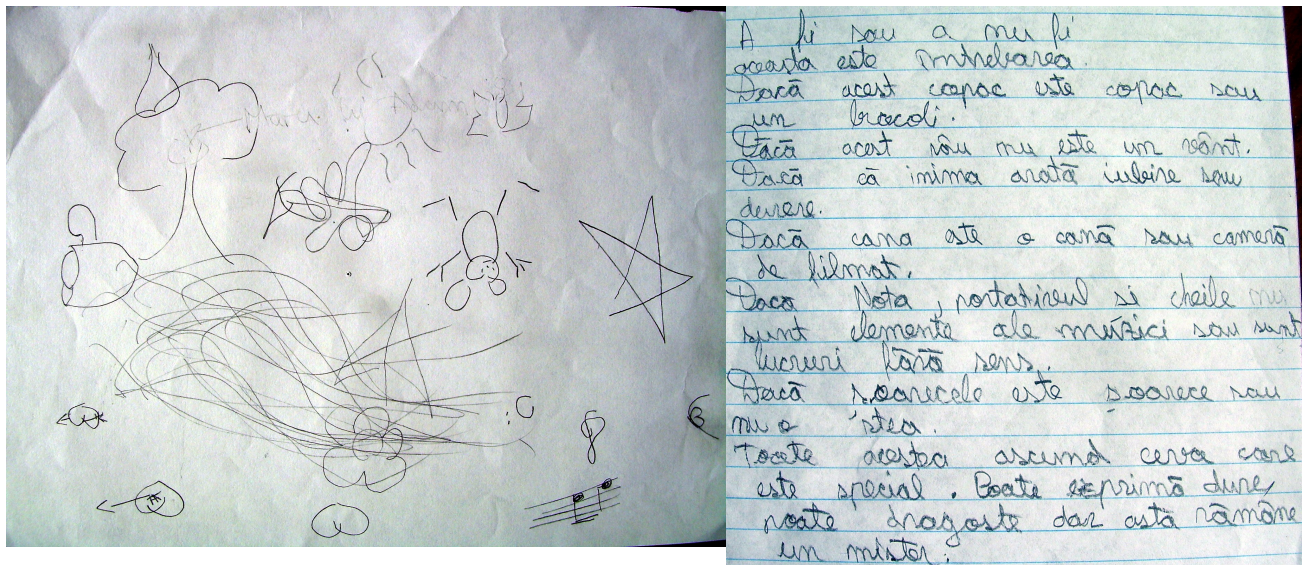 A fi sau a nu fi
aceasta este intrebarea.
Dacă acest copac este copac sau
un brocoli.
Dacă acest râu nu este un vânt.
Dacă că inima arată iubire sau
durere.
Dacă cana este o cană sau cameră
de filmat.
Daca Nota, portativul si cheile nu
sunt elemente ale múzici sau sunt
lucruri fără sens.
Dacă soarecele este șoarece sau
nu o stea.
Toate acestea ascund ceva care
este special. Poate exprimă dure,
poate dragoste dar asta rămâne
un mister.